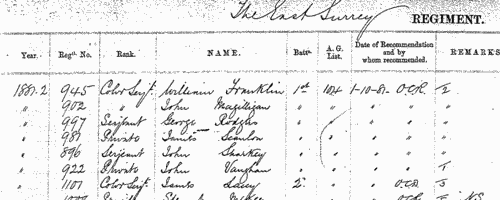 The East Surrey REGIMENT.
Year. Regtl. No. Rank. NAME. Batn. A. G. List. Date of Recommendation and by whom recommended. REMARKS
1881-2 945 Color Serjt. William Franklin 1st 104 1-10-81- O.C.R. 2
" 902 " John Magilligan " " " " "
" 997 Serjeant George Rodgers " " " "
" 987 Private James Scanlon " " " "
" 896 Serjeant John Sharkey " " " "
" 922 Private John Vaughan " " " " 1
" 1107 Color Serjt. James Lacey 2 " " O.C.R. 3